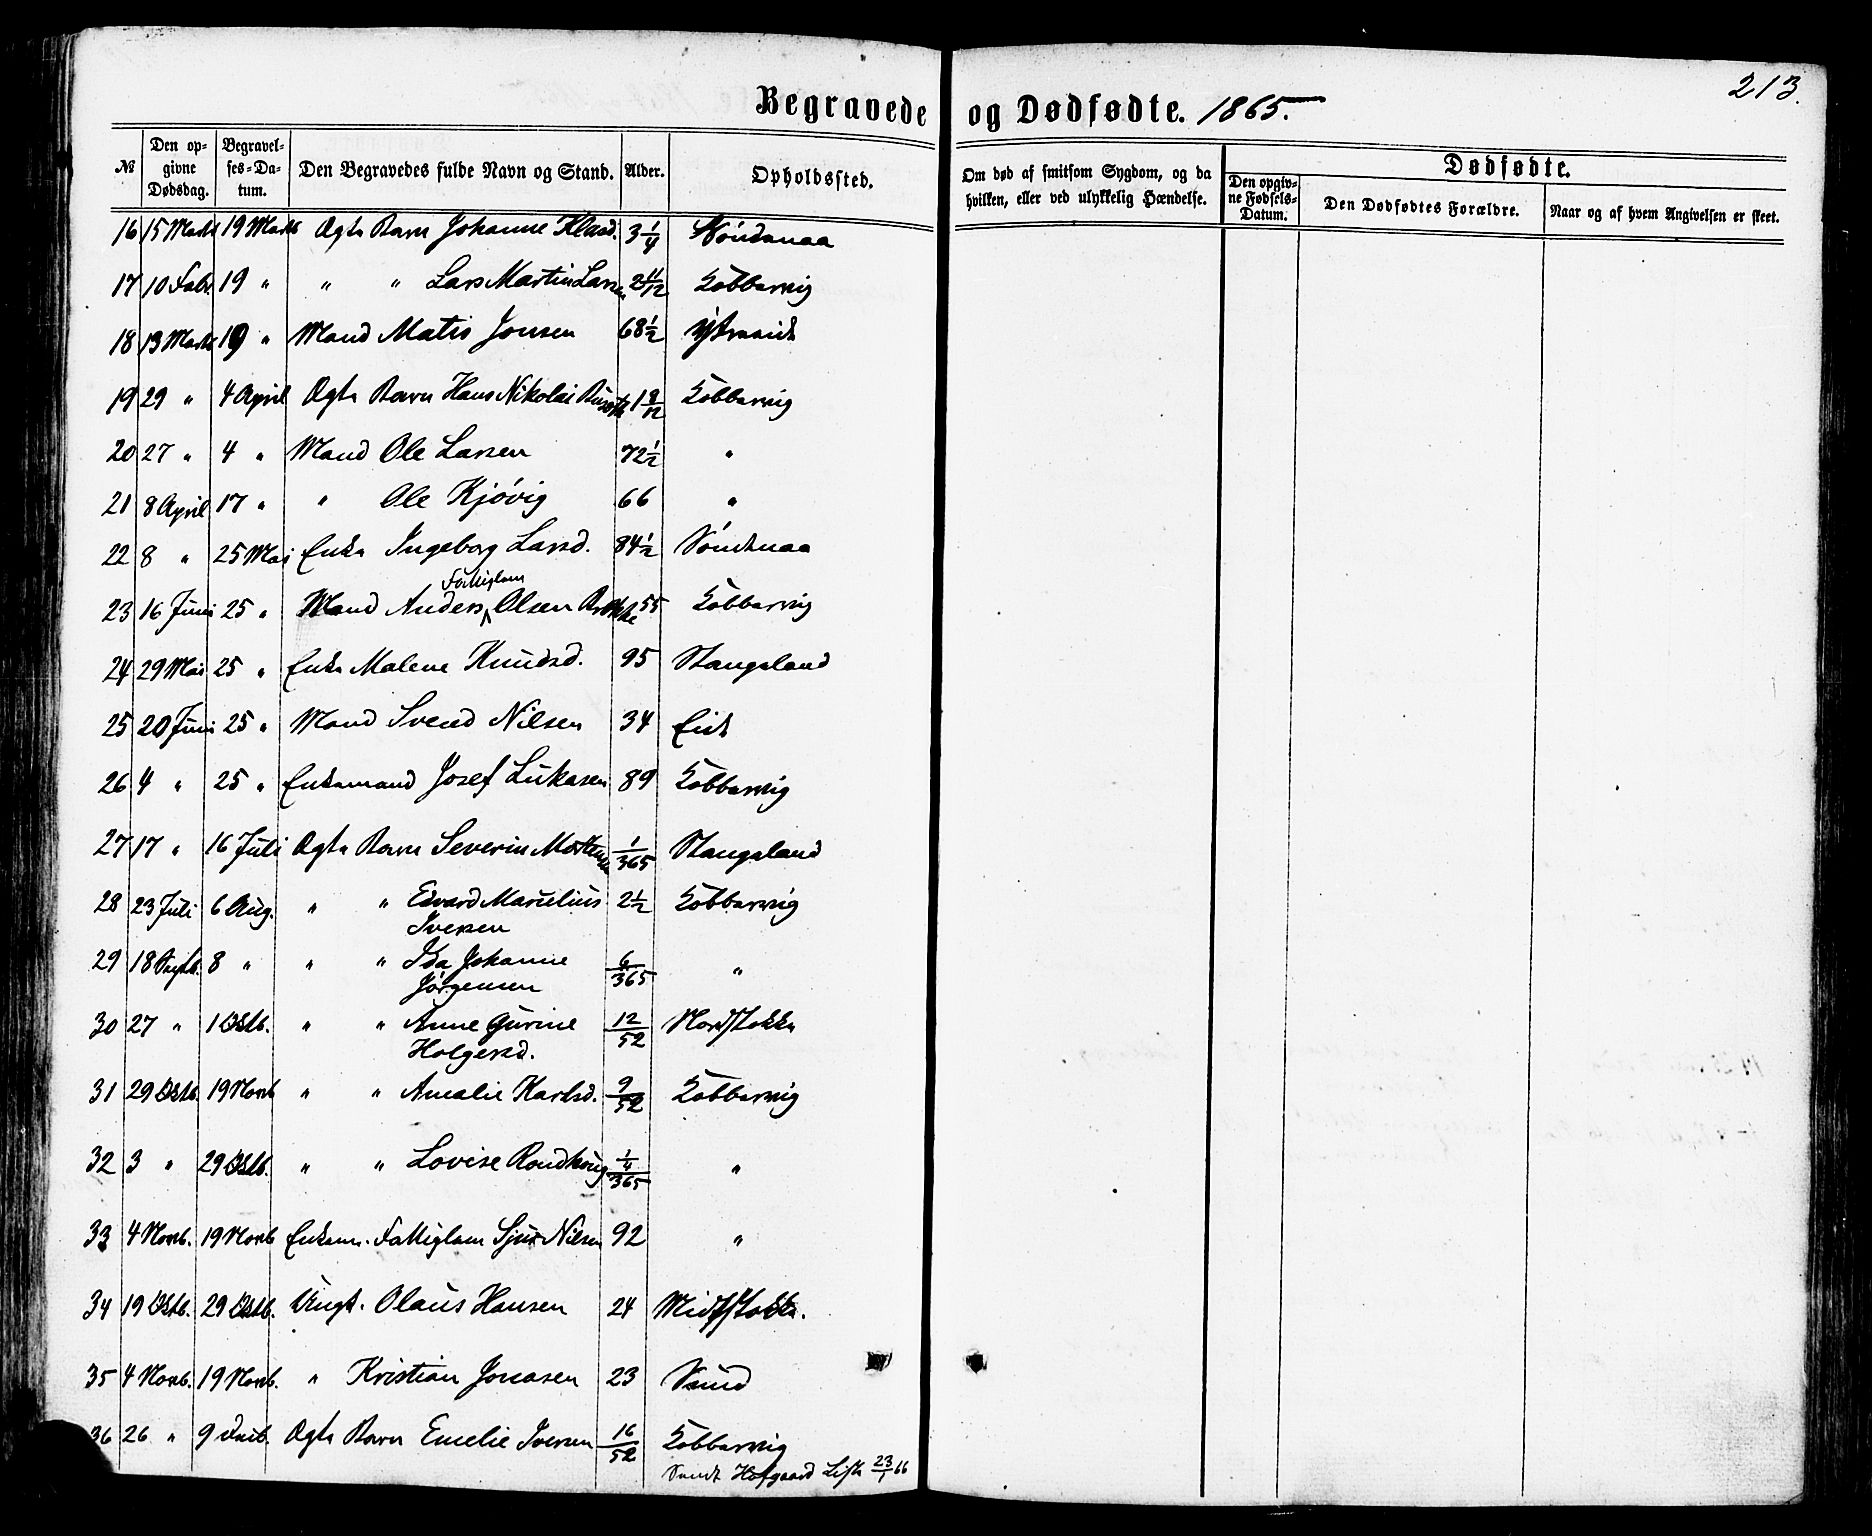 213.
Begravede og Dødfødte. 1865.
№ Den opgivne Dødsdag. Begravelses-Datum. Den Begravedes fulde Navn og Stand. Alder. Opholdssted. Om død af smitsom Sygdom, og da hvilken, eller ved ulykkelig Hændelse. Dødfødte. Den opgivne Fødsels-Datum. Den Dødfødtes Forældre. Naar og af hvem Angivelsen er skeet.
16 15 Marts 19 Marts Ægte Barn Johanne 3 1/4
17 10 Febr. 19 " " " Lars Martin Larsen 2 11/12 Kobbervig
18 13 Marts 19 " Mand Matis Jonsen 68 1/2 Ytreeide
19 29 " 4 April Ægte Barn Hans Nikolai 1 8/12 Kobbervig
20 27 " 4 " Mand Ole Larsen 72 1/2 "
21 8 April 17 " " Ole Kjóvig 66 "
22 8 " 25 Mai Enke Ingeborg Larsd. 84 1/2 Søndenaa
Fattiglem
23 16 Juni 25 " Mand Anders Olsen 55 Kobbervig
24 29 Mai 25 " Enke Malene Knudsd. 95 Stangeland
25 20 Juni 25 " Mand Svend Nilsen 34 Eide
26 4 " 25 " Enkemand Josef Lukasen 89 Kobbervig
27 17 " 16 Juli Ægte Barn Severin Mortensen 1/365 Stangeland
28 23 Juli 6 Aug. " " Edvard Marselius 2 1/2 Kobbervig
Iversen
29 18 Septb. 8 " " " Ida Johanne 6/365 "
Jørgensen
30 27 " 1 Oktb. " " Anne Gurine 12/52 Nordstokke
Holgersd.
31 29 Oktb. 19 Novb " " Amalie Karlsd. 9/52 Kobbervig
32 3 " 29 Oktb. " " Lovise 1/4/365 "
33 4 Novb. 19 Novb Enkem. Fattiglem Sjur Nilsen 92 "
34 19 Oktb. 29 Oktb. Ungk. Olaus Hansen 24 Midtstokke.
35 4 Novb. 19 Novb. " Kristian Jonasen 23 Sund
36 26 " 9 Decb. Ægte Barn Emelie Iversen 16/52 Kobbervig
Sendt Hofgaard Liste 23/1 66